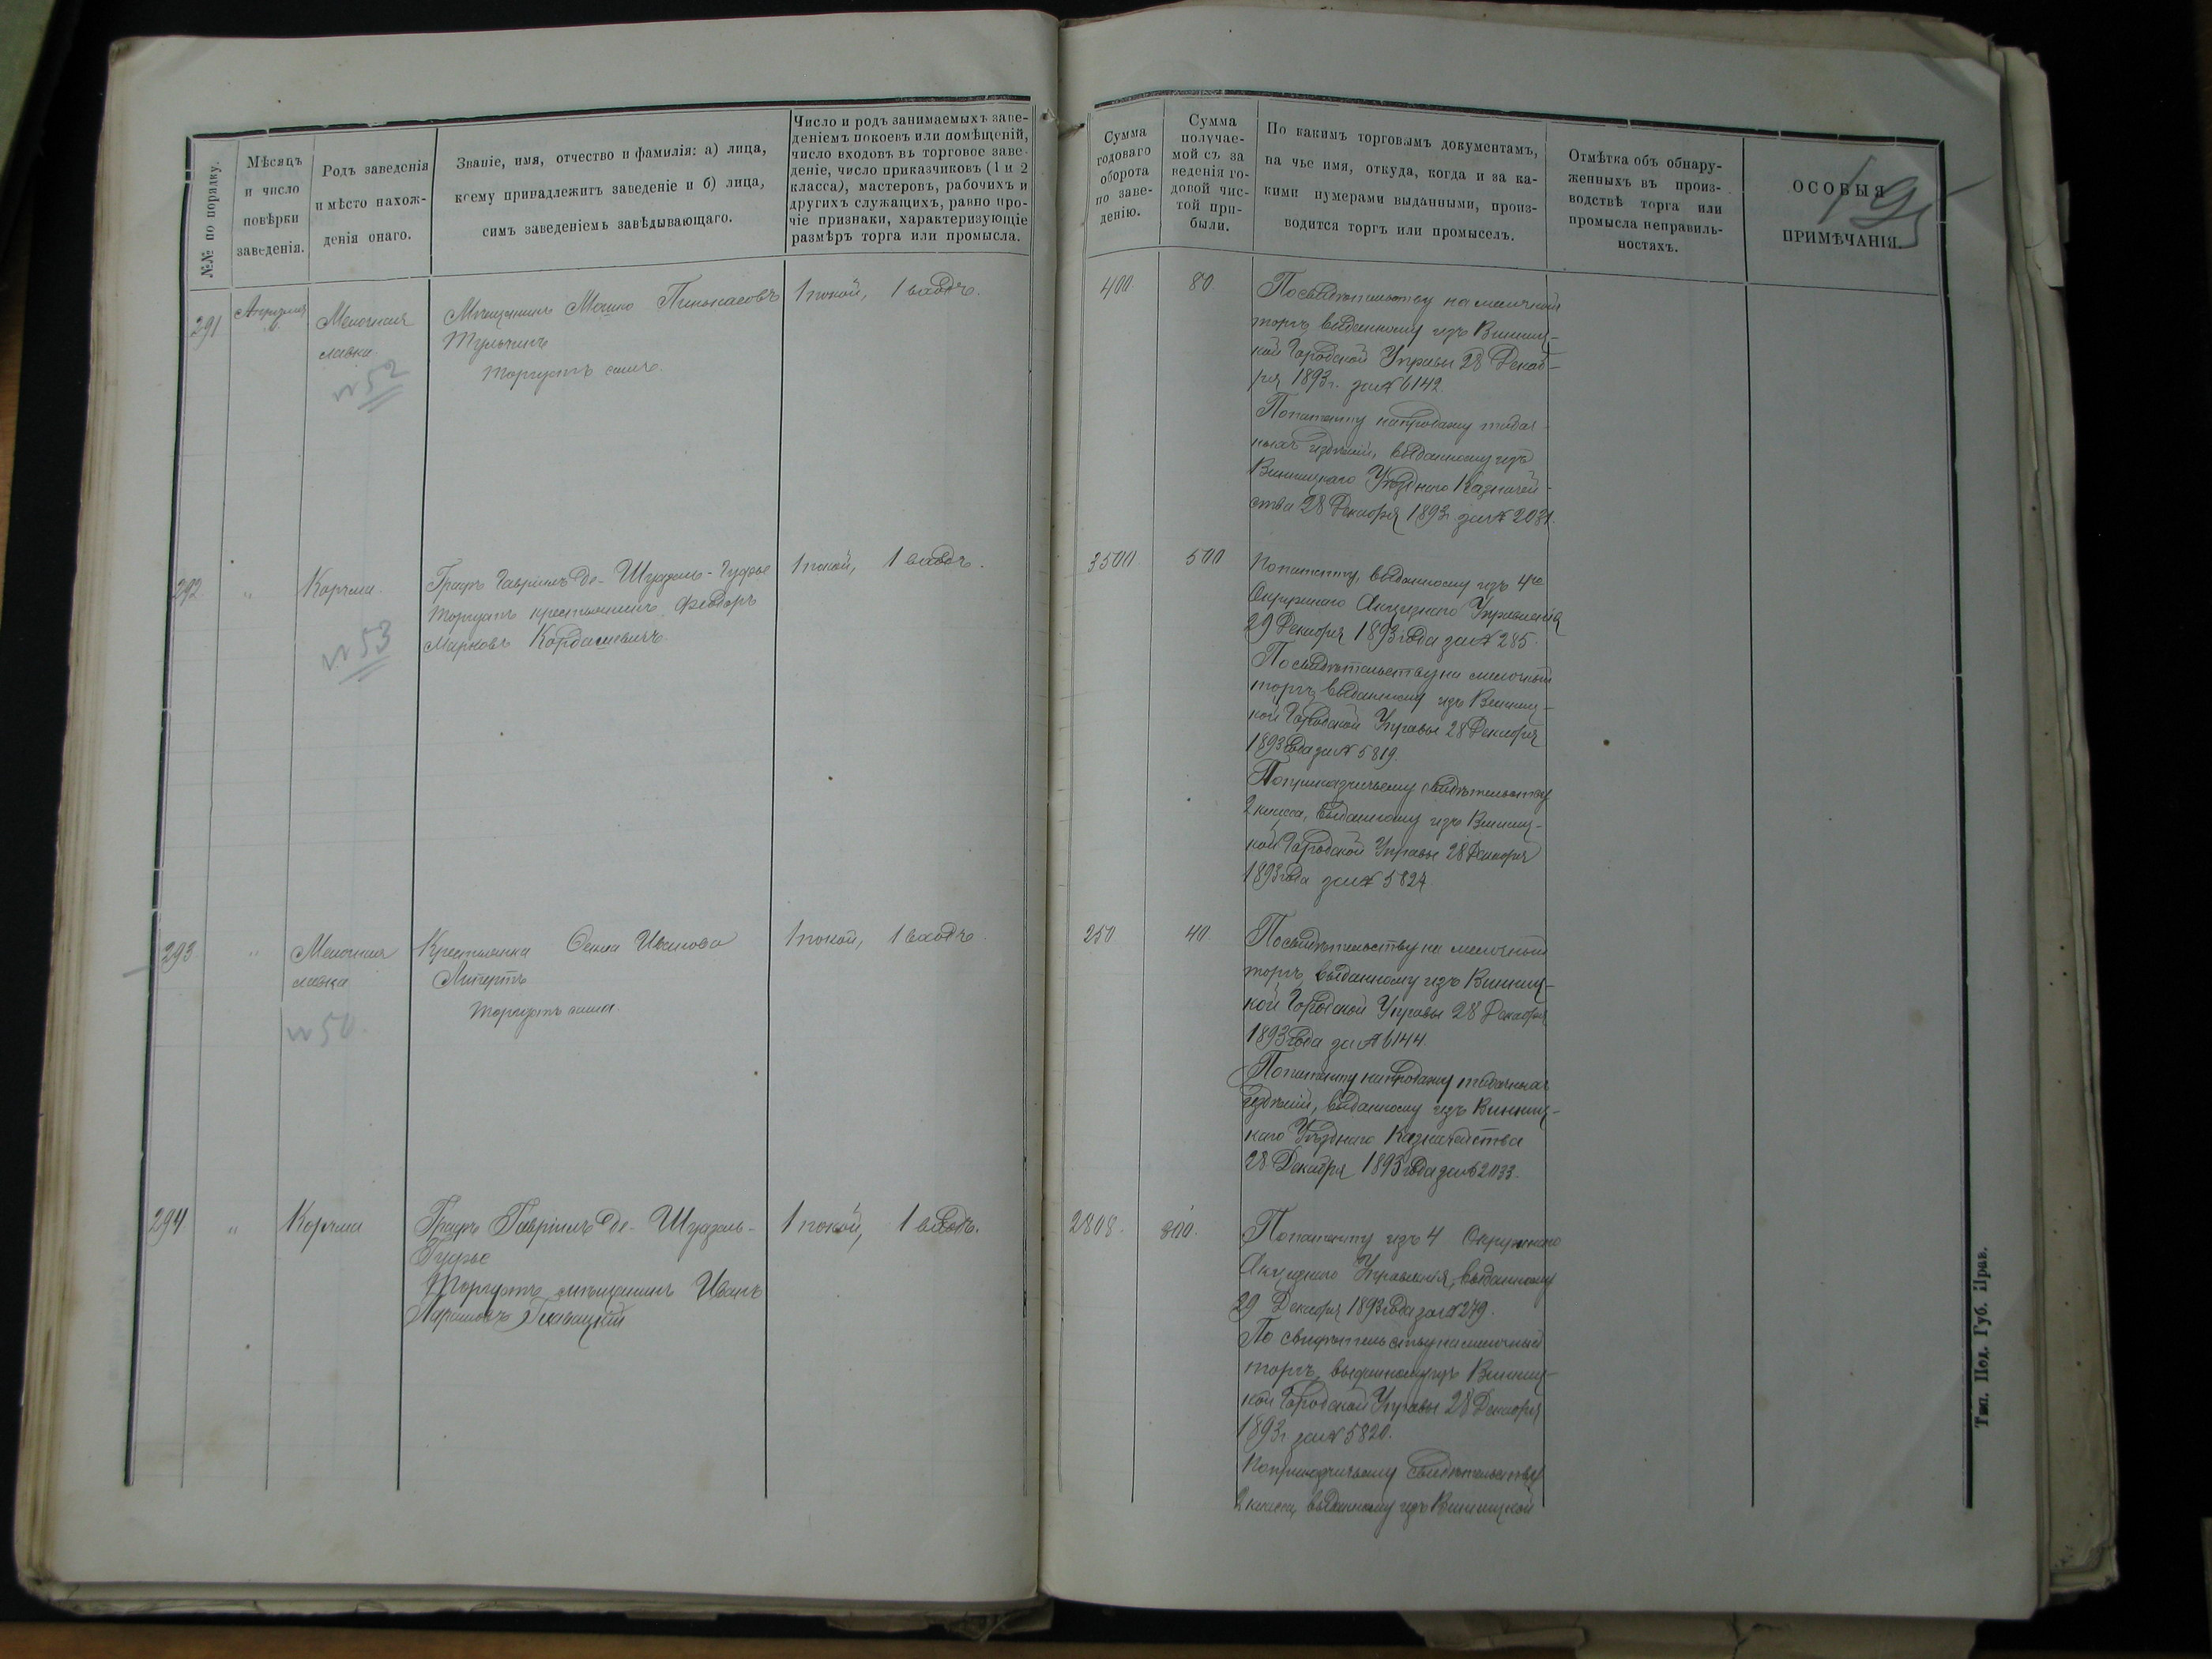 №№ по порядку.
Мѣсяцъ
и число
повѣрки
заведенія.
Родъ заведенія
и мѣсто нахож-
денія онаго.
Званіе, имя, отчество и фамилія: а) лица,
коему принадлежитъ заведеніе и б) лица,
симъ заведеніемъ завѣдывающаго.
Число и родъ занимаемыхъ заве-
деніемъ покоевъ или помѣщеній,
число входовъ въ торговое заве-
деніе, число приказчиковъ (1 и 2
класса), мастеровъ, рабочихъ и
другихъ служащихъ, равно про-
чіе признаки, характеризующіе
размѣръ торга или промысла.
Сумма
годоваго
оборота
по заве-
денію.
Сумма
получае-
мой съ за
веденія го-
довой чис-
той при-
были.
По какимъ торговымъ документамъ,
на чье имя, откуда, когда и за ка-
кими нумерами выданными, произ-
водится торгъ или промыселъ.
Отмѣтка объ обнару-
женныхъ въ произ-
водствѣ торга или
промысла неправиль-
ностяхъ.
ОСОБЫЯ
ПРИМѢЧАНІЯ.
291
Апрѣля
Мелочная
лавка
№ 52
Мѣщанинъ Мошко Пинькасовъ
Тульчинъ
Торгуетъ самъ.
1 покой, 1 входъ.
400
80
По свидѣтельству на мелочный
торгъ, выданному изъ Винниц-
кой Городской Управы 28 Декаб-
ря 1893 г. за № 6142.
По патенту на продажу табач-
ныхъ издѣлій, выданному изъ
Винницкаго Уѣзднаго Казначей-
ства 28 Декабря 1893 г. за № 2031.
292
"
Корчма
№ 53
Графъ Гавріилъ де-Шуазель-Гуфье
Торгуетъ крестьянинъ Феодоръ
Марковъ Кордасевичъ
1 покой, 1 входъ.
3500
500
По патенту, выданному изъ 4го
Окружнаго Акцизнаго Управленія
29 Декабря 1893 года за № 285.
По свидѣтельству на мелочный
торгъ, выданному изъ Винниц-
кой Городской Управы 28 Декабря
1893 года за № 5819.
По приказчичьему свидѣтельству
2 класса, выданному изъ Винниц-
кой Городской Управы 28 Декабря
1893 года за № 5824
293
"
Мелочная
лавка
№ 50
Крестьянка Іванова
Торгуетъ сама.
1 покой, 1 входъ.
250
40
По свидѣтельству на мелочный
торгъ, выданному изъ Винниц-
кой Городской Управы 28 Декабря
1893 года за № 6144.
По патенту на продажу табачныхъ
издѣлій, выданному изъ Винниц-
каго Уѣзднаго Казначейства
28 Декабря 1893 года за № 2033.
294
"
Корчма
Графъ Гавріилъ де-Шуазель-
Гуфье
Торгуетъ мѣщанинъ Иванъ
1 покой, 1 входъ.
2808.
800.
По патенту изъ 4 Окружнаго
Акцизнаго Управленія, выданному
29 Декабря 1893 года за № 279.
По свидѣтельству на мелочный
торгъ, выданному изъ Винниц-
кой Городской Управы 28 Декабря
1893 г. за № 5820.
По приказчичьему свидѣтельству
2 класса, выданному изъ Винницкой
Тип. Под. Губ. Прав.